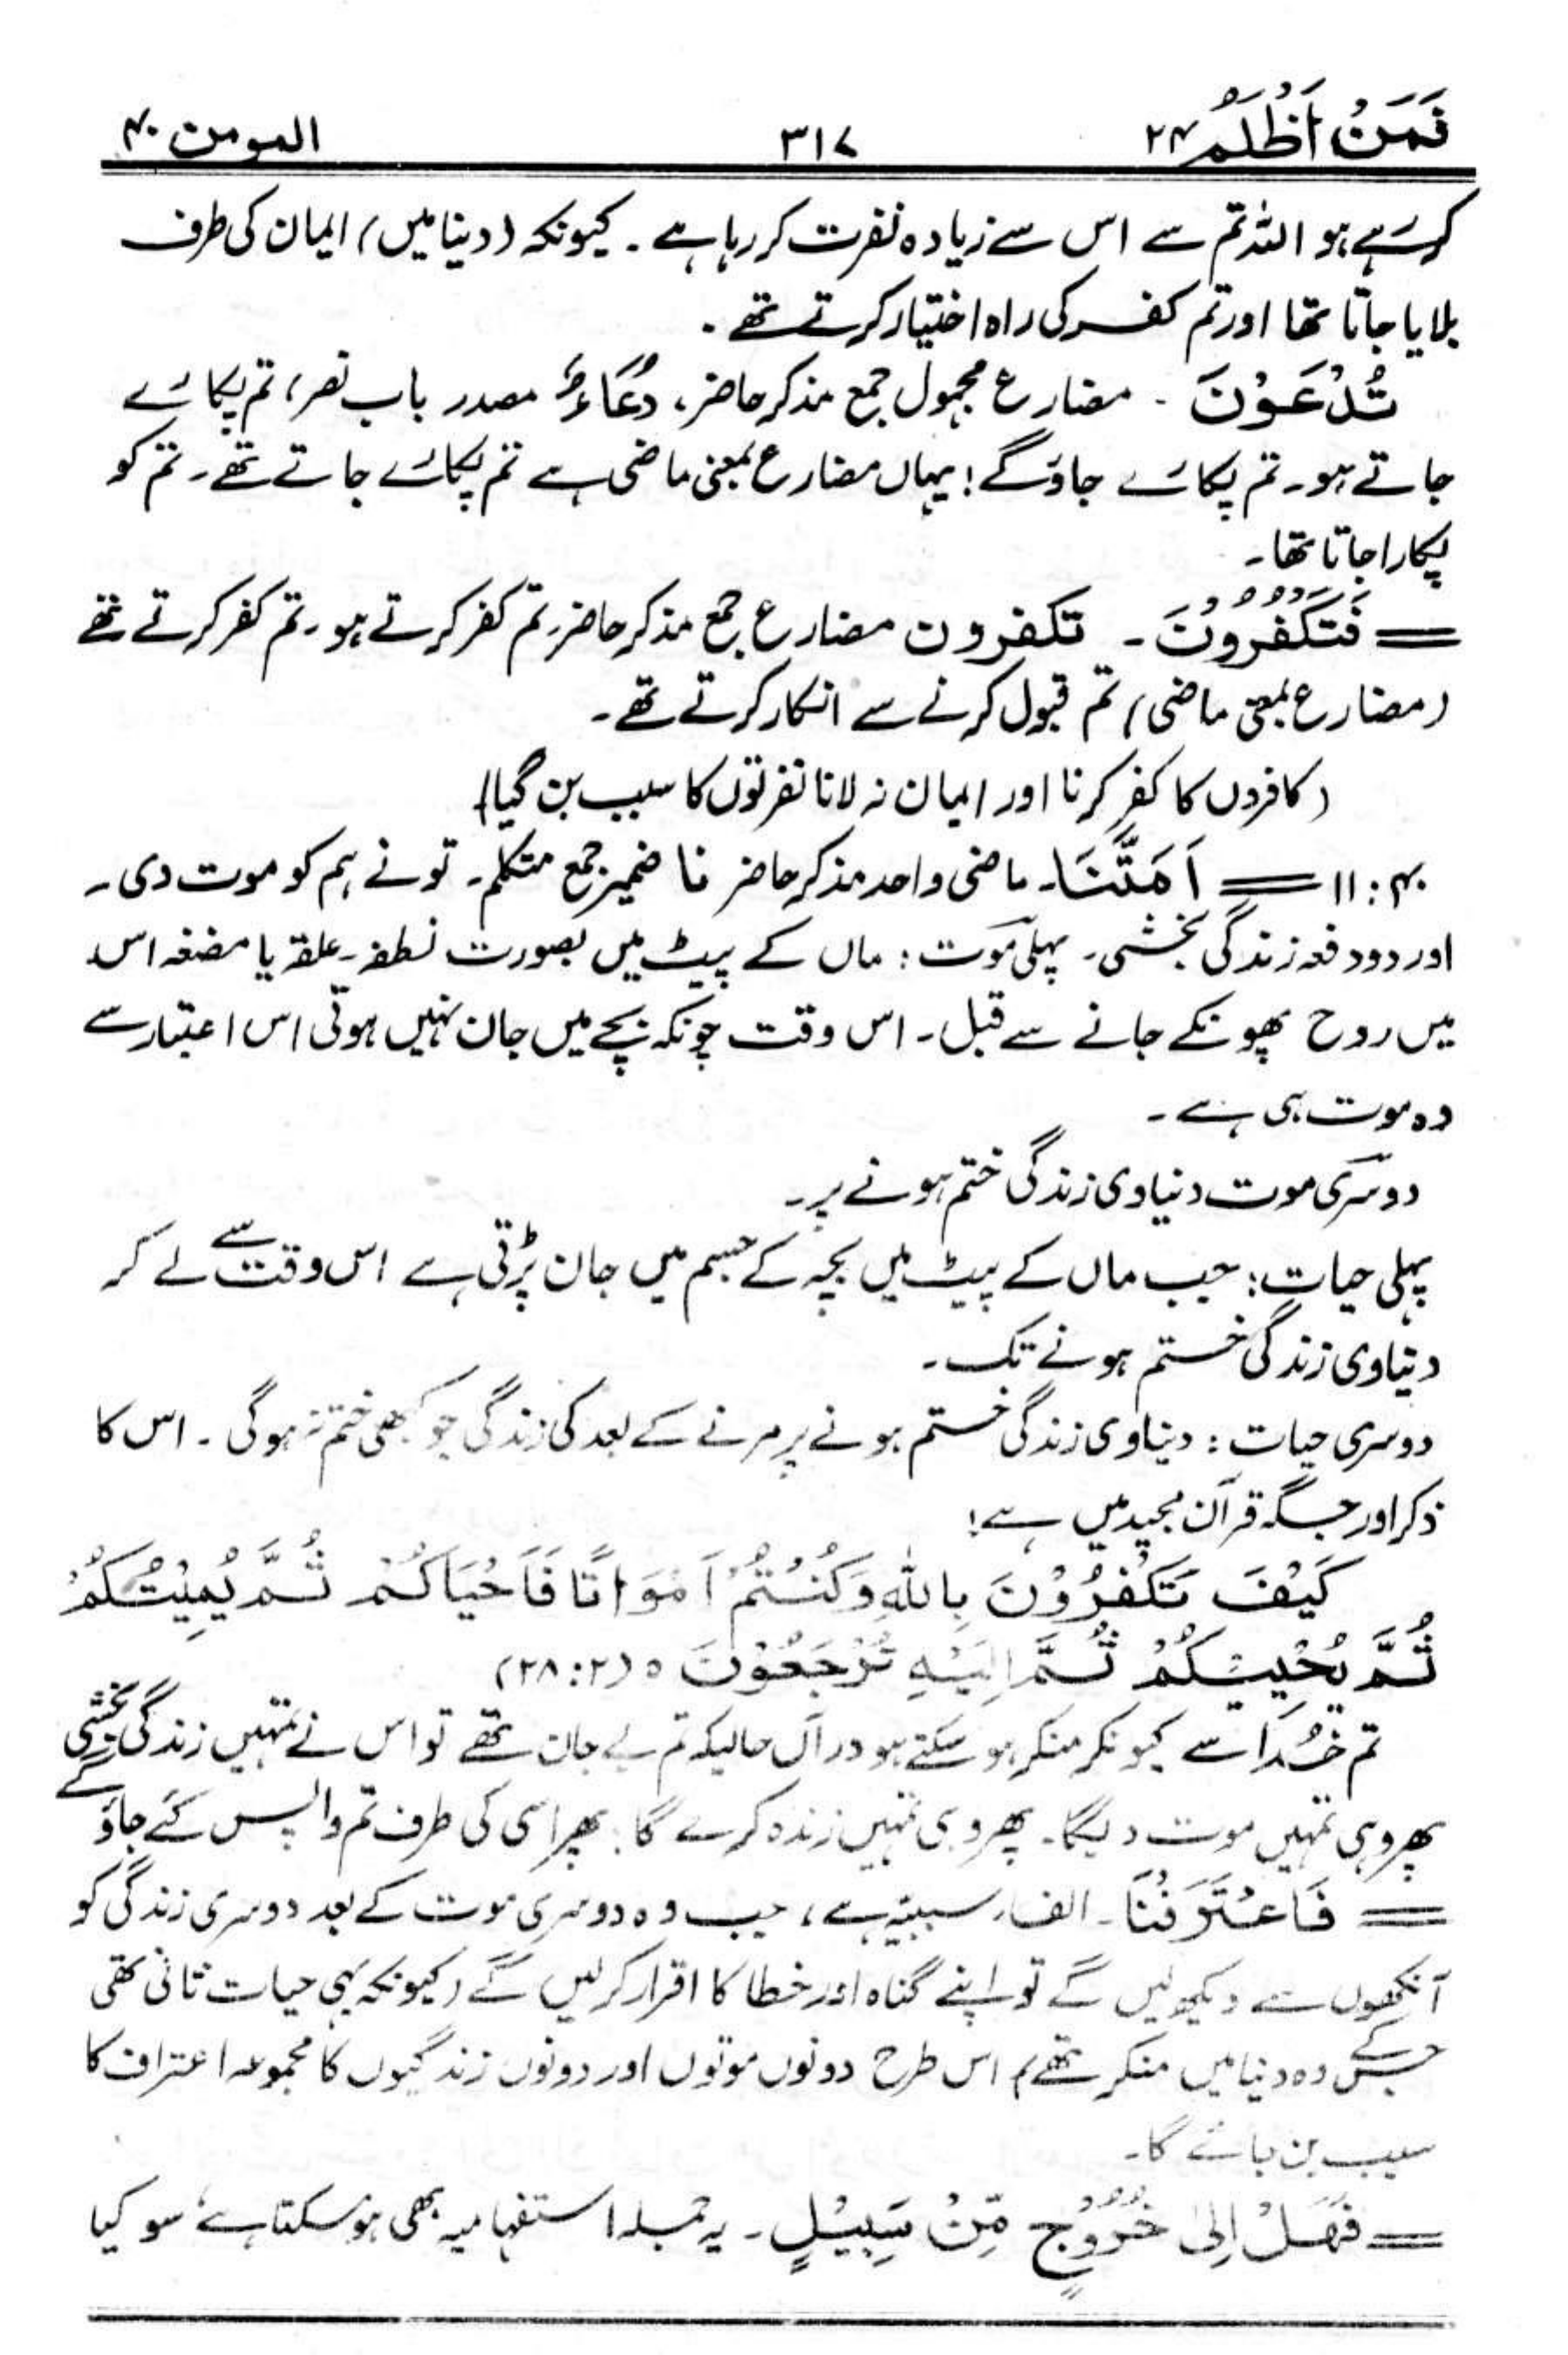 فَمَنْ اَظْلَمُ ۲۴ ۳۱۷ المومن ۴۰
کر رہے ہو اللہ تم سے اس سے زیادہ نفرت کر رہا ہے ۔ کیونکہ (دینا میں) ایمان کی طرف
بلایا جاتا تھا اور تم کفر کی راہ اختیار کرتے تھے ۔
تُدْعَوْنَ ۔ مضارع مجہول جمع مذکر حاضر، دُعَاءٌ مصدر باب نصر، تم پکارے
جاتے ہو۔ تم پکارے جاؤ گے! یہاں مضارع بمعنی ماضی ہے تم پکارے جاتے تھے۔ تم کو
پکارا جاتا تھا۔
= فَتَكْفُرُوْنَ ۔ تکفرون مضارع جمع مذکر حاضر، تم کفر کرتے ہو۔ تم کفر کرتے تھے
(مضارع بمعنی ماضی) تم قبول کرنے سے انکار کرتے تھے۔
(کافروں کا کفر کرنا اور ایمان نہ لانا نفرتوں کا سبب بن گیا)
۴۰ : ۱۱ = اَمَتَّنَا۔ ماضی واحد مذکر حاضر نا ضمیر جمع متکلم۔ تو نے ہم کو موت دی۔
اور دو دفعہ زندگی بخشی۔ پہلی موت : ماں کے پیٹ میں بصورت نطفہ۔ علقہ یا مضغہ اس
میں روح پھونکے جانے سے قبل۔ اس وقت چونکہ بچے میں جان نہیں ہوتی اس اعتبار سے
وہ موت ہی ہے۔
دوسری موت دنیاوی زندگی ختم ہونے پر۔
پہلی حیات : جب ماں کے پیٹ میں بچہ کے جسم میں جان پڑتی ہے اس وقت سے لے کر
دنیاوی زندگی ختم ہونے تک۔
دوسری حیات : دنیاوی زندگی ختم ہونے پر مرنے کے بعد کی زندگی جو کبھی ختم نہ ہوگی ۔ اس کا
ذکر اور جگہ قرآن مجید میں ہے!
كَيْفَ تَكْفُرُوْنَ بِاللهِ وَكُنْتُمْ اَمْوَاتًا فَاَحْيَاكُمْ ثُمَّ يُمِيْتُكُمْ
ثُمَّ يُحْيِيْكُمْ ثُمَّ اِلَيْهِ تُرْجَعُوْنَ ٥ (۲۸:۲)
تم خدا سے کیونکر منکر ہو سکتے ہو درآں حالیکہ تم بے جان تھے تو اس نے تمہیں زندگی بخشی
پھر وہی تمہیں موت دیگا۔ پھر وہی تمہیں زندہ کرے گا : پھر اسی کی طرف تم واپس کئے جاؤ گے
= فَاعْتَرَفْنَا۔ الفاء سببیہ ہے، جب وہ دوسری موت کے بعد دوسری زندگی کو
آنکھوں سے دیکھ لیں گے تو اپنے گناہ اور خطا کا اقرار کرلیں گے (کیونکہ یہی حیات ثانی تھی
جس کے وہ دنیا میں منکر تھے) اس طرح دونوں موتوں اور دونوں زندگیوں کا مجموعہ اعتراف کا
سبب بن جائے گا۔
= فَهَلْ اِلٰى خُرُوْجٍ مِّنْ سَبِيْلٍ ۔ یہ جملہ استفہامیہ بھی ہو سکتا ہے، سو کیا